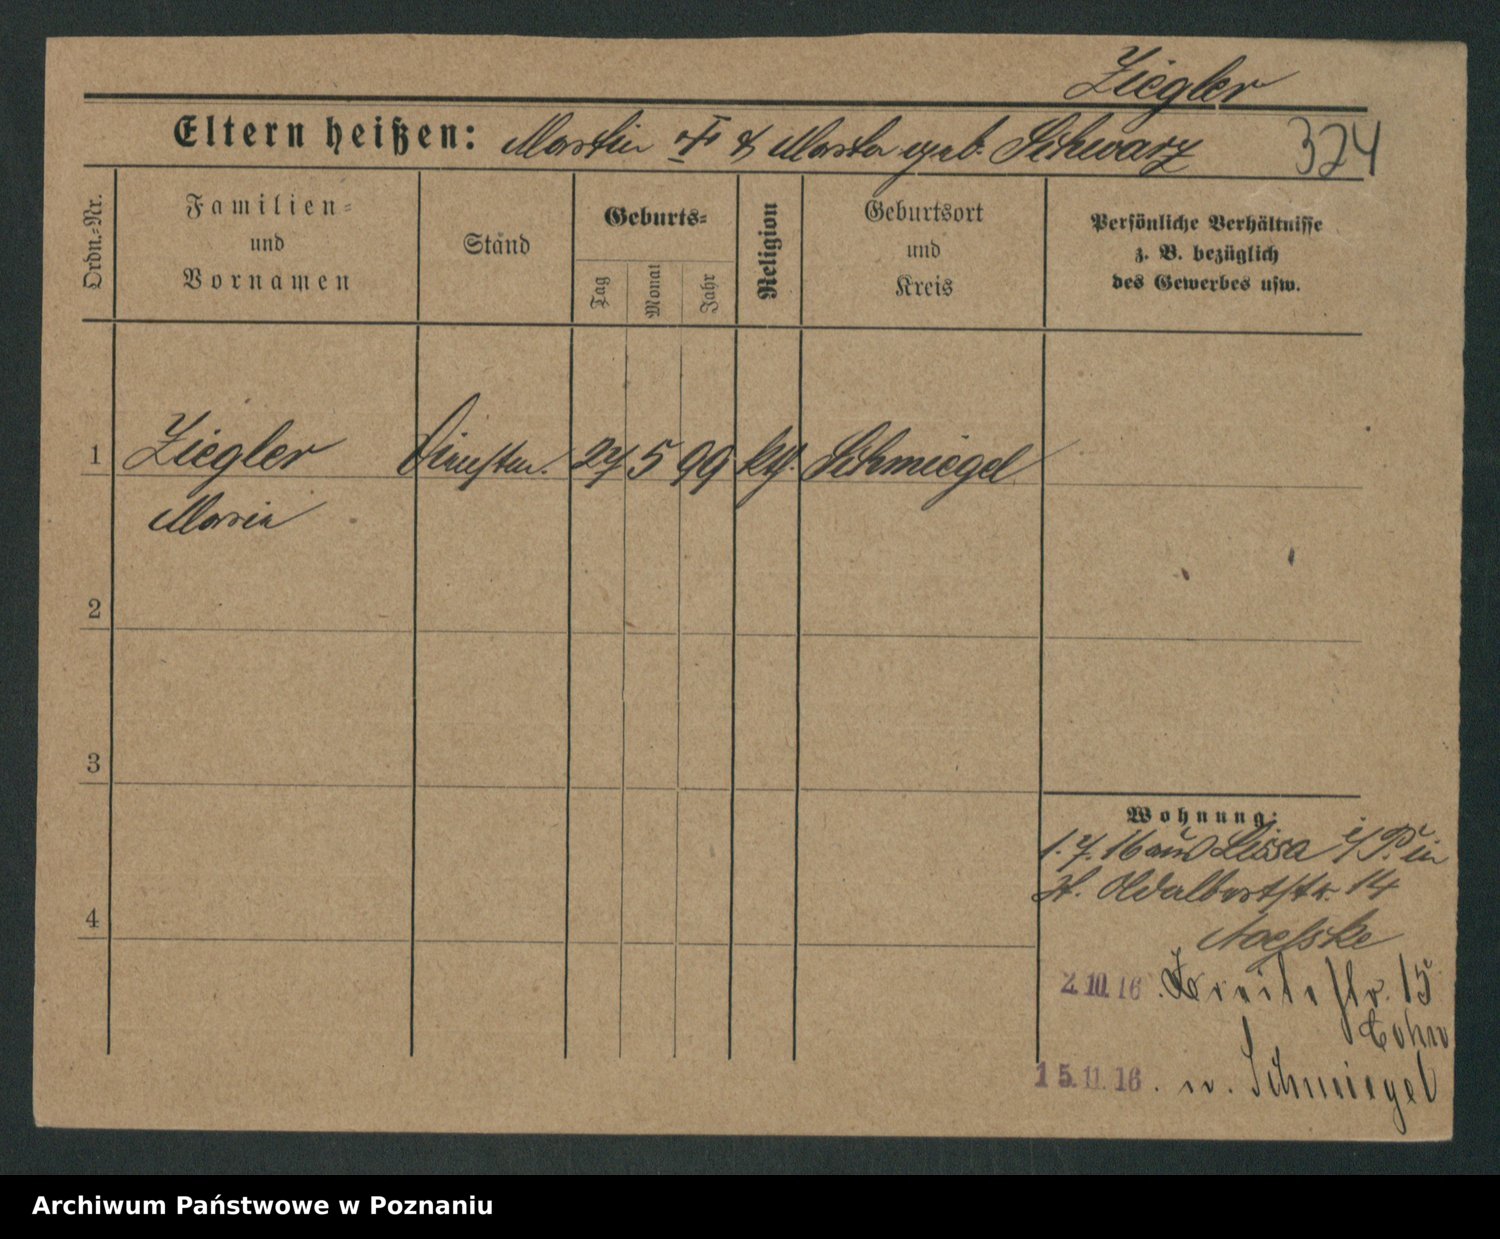 Ziegler
Eltern heißen: Martin † & Marta geb. Schwarz
324
Ordn.-Nr.
Familien-
und
Vornamen
Stand
Geburts-
Tag
Monat
Jahr
Religion
Geburtsort
und
Kreis
Persönliche Verhältnisse
z. B. bezüglich
des Gewerbes usw.
1 Ziegler 27 5 99 kth. Schmiegel
Maria
2
3
4
Wohnung:
1.7.16 aus Lissa i/P. in
14
2.10.16 . Breitestr. 15
Cohn
15.11.16 . n. Schmiegel
Archiwum Państwowe w Poznaniu